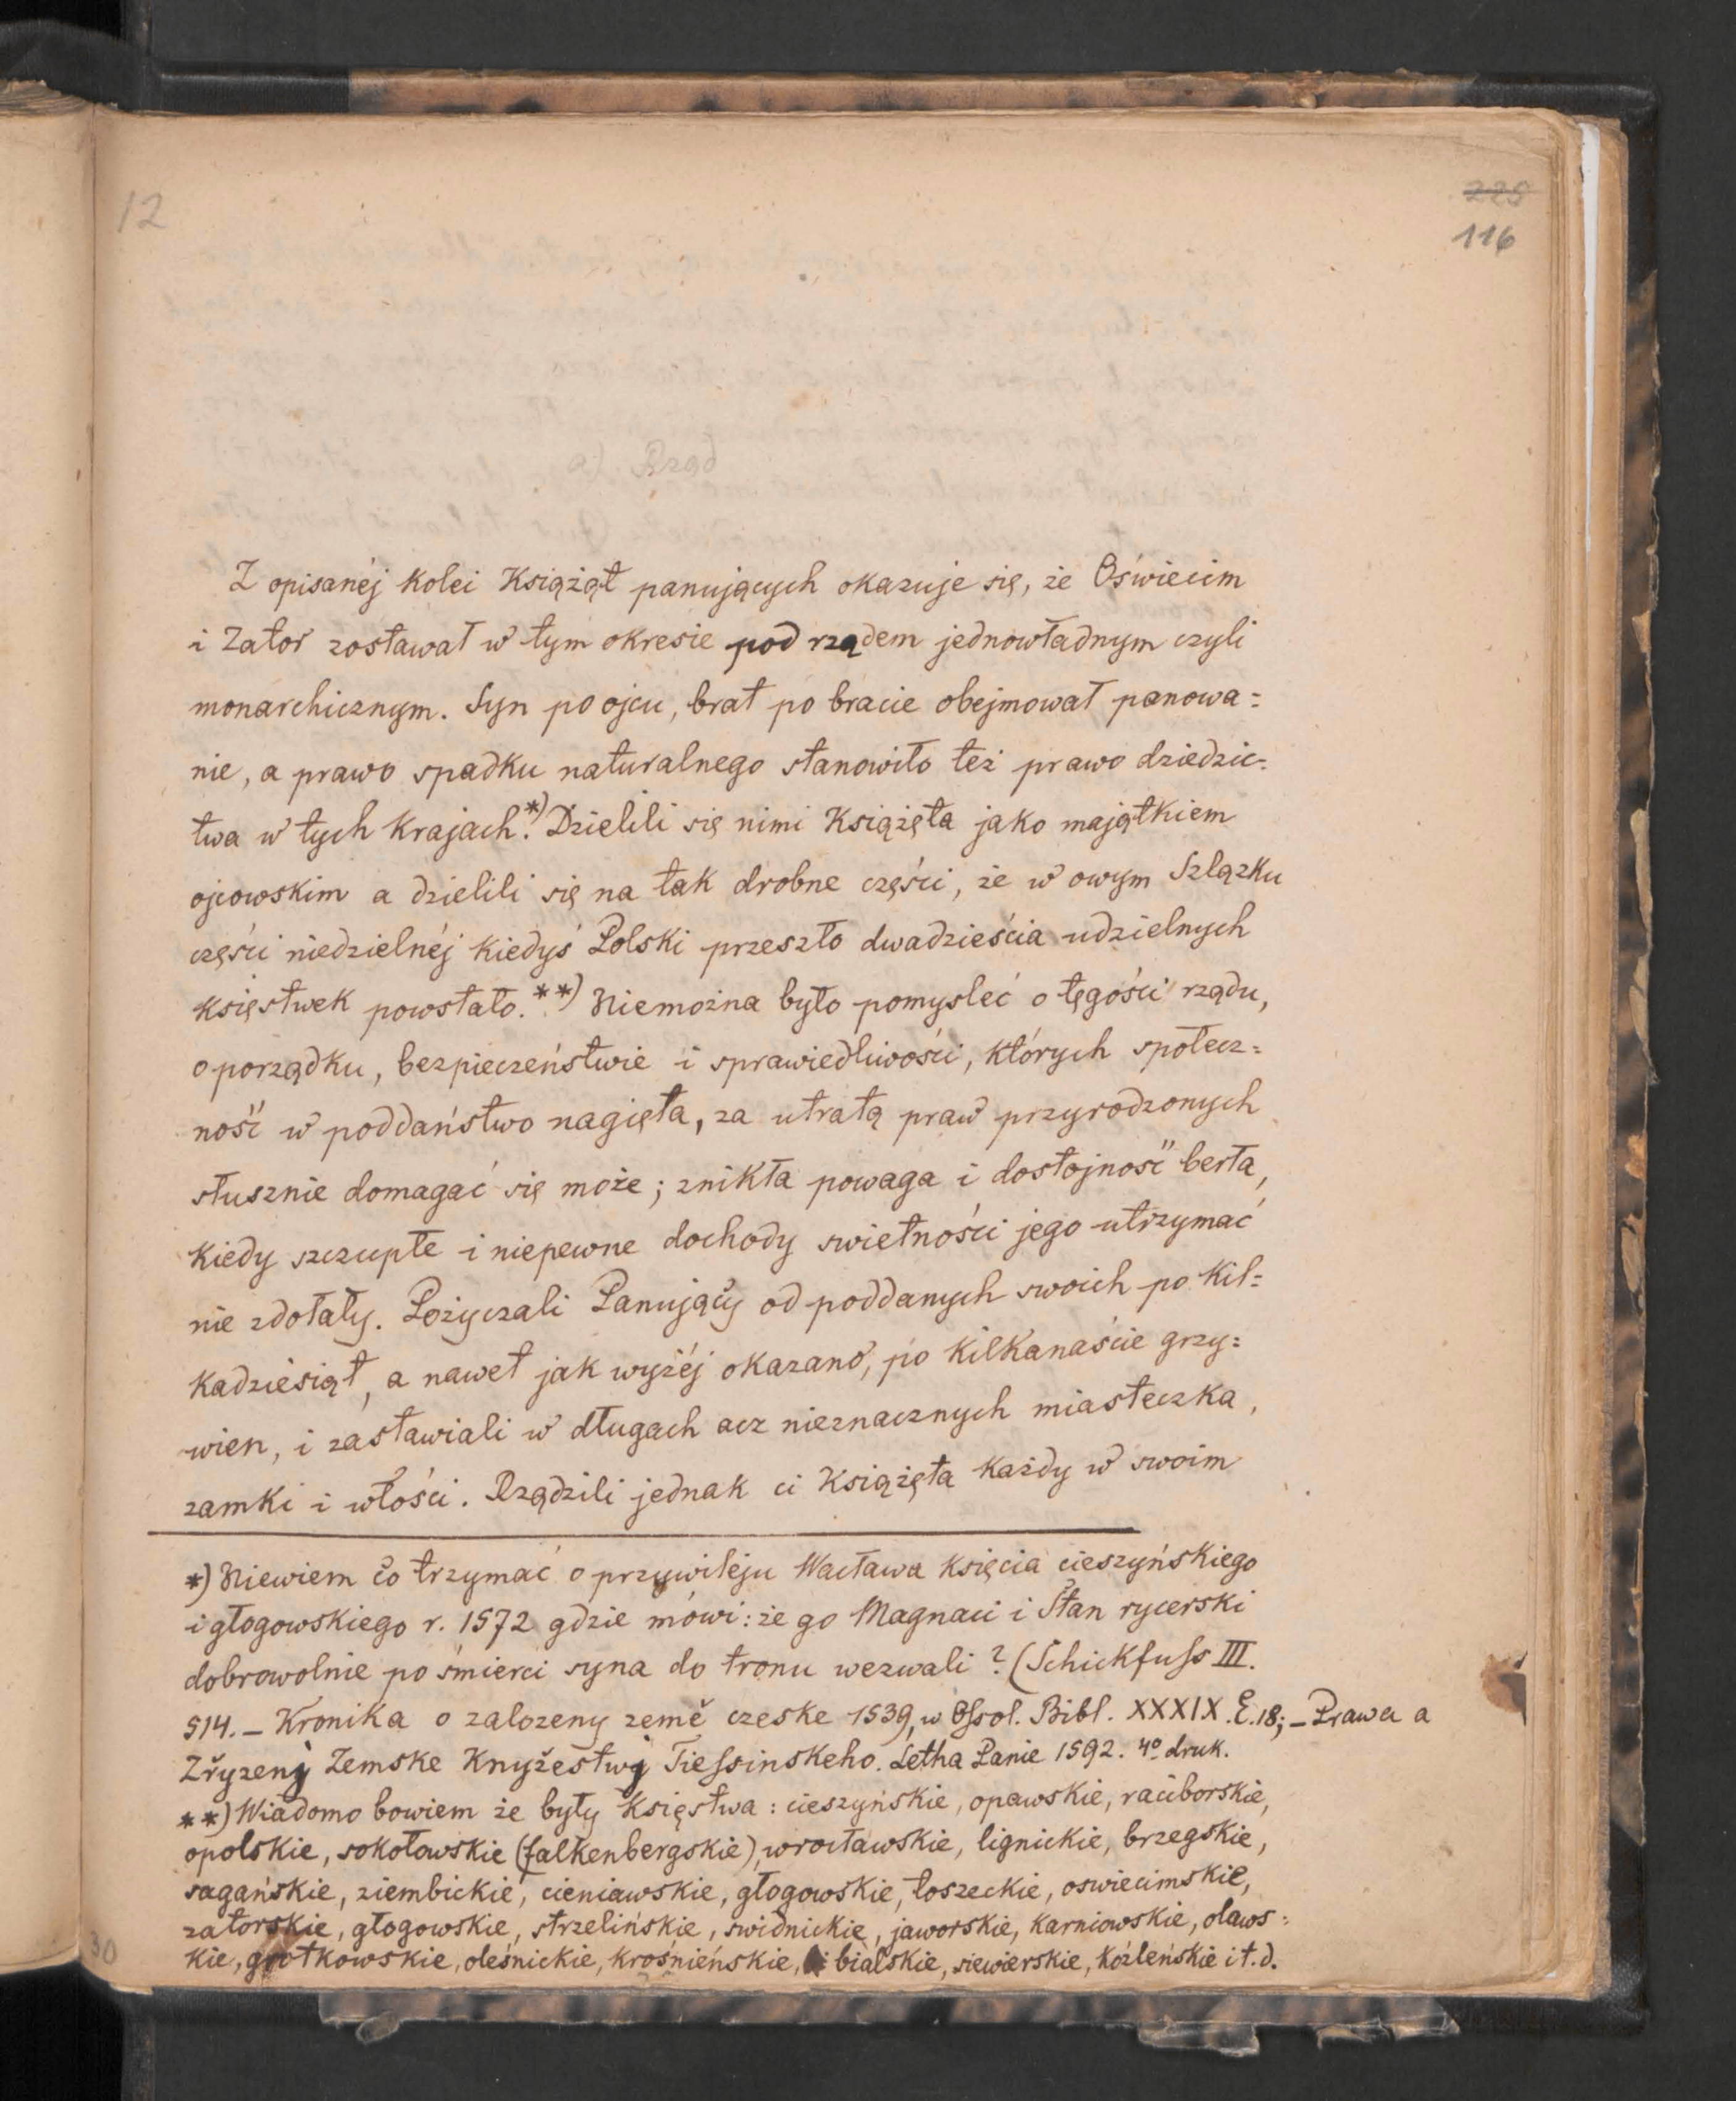 12
229
116
a). Rząd
Z opisanéj kolei Książąt panujących okazuje się, że Oświecim
i Zator zostawał w tym okresie pod rządem jednowładnym czyli
monarchicznym. Syn po ojcu, brat po bracie obejmował panowa=
nie, a prawo spadku naturalnego stanowiło też prawo dziedzic=
twa w tych krajach.*) Dzielili się nimi Książęta jako majątkiem
ojcowskim a dzielili się na tak drobne części, że w owym Szlązku
części niedzielnéj kiedyś Polski przeszło dwadzieścia udzielnych
księstwek powstało.**) Niemożna było pomysleć o tęgości rządu,
o porządku, bezpieczeństwie i sprawiedliwości, których społecz=
ność w poddaństwo nagięta, za utratą praw przyrodzonych
słusznie domagać się może; znikła powaga i dostojność berła,
kiedy szczupłe i niepewne dochody swietności jego utrzymać
nie zdołały. Pożyczali Panujący od poddanych swoich po kil=
kadziesiąt, a nawet jak wyżéj okazano, po kilkanaście grzy=
wien, i zastawiali w długach acz nieznacznych miasteczka,
zamki i włości. Rządzili jednak ci Książęta każdy w swoim
*) Niewiem co trzymać o przywileju Wacława księcia cieszyńskiego
i głogowskiego r. 1572 gdzie mówi: że go Magnaci i Stan rycerski
dobrowolnie po śmierci syna do tronu wezwali? (Schickfuſs III.
514. – Kronika o zalozeny země czeske 1539, w Oſsol. Bibl. XXXIX. E. 18; – Prawa a
Zřyzenj Zemske Knyžestwj Tieſsinskeho. Letha Panie 1592. 4º druk.
**) Wiadomo bowiem że były Księstwa: cieszyńskie, opawskie, raciborskie,
opolskie, sokołowskie (falkenbergskie), wrocławskie, lignickie, brzegskie,
sagańskie, ziembickie, cieniawskie, głogowskie, łoszeckie, oswiecimskie,
zatorskie, głogowskie, strzelińskie, swidnickie, jaworskie, karniowskie, oławs=
kie, grotkowskie, oleśnickie, krośnieńskie, bialskie, siewierskie, koźleńskie i t. d.
30